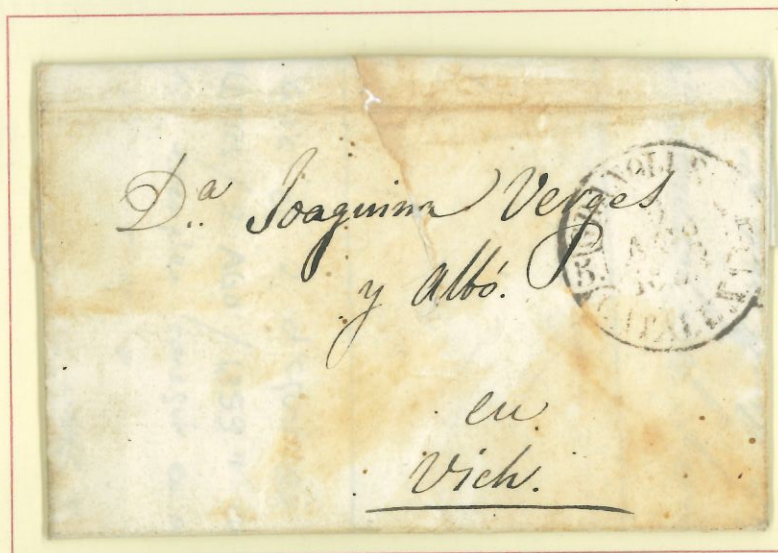 D.ª Joaquina Verges
y Albó.
en
Vich.